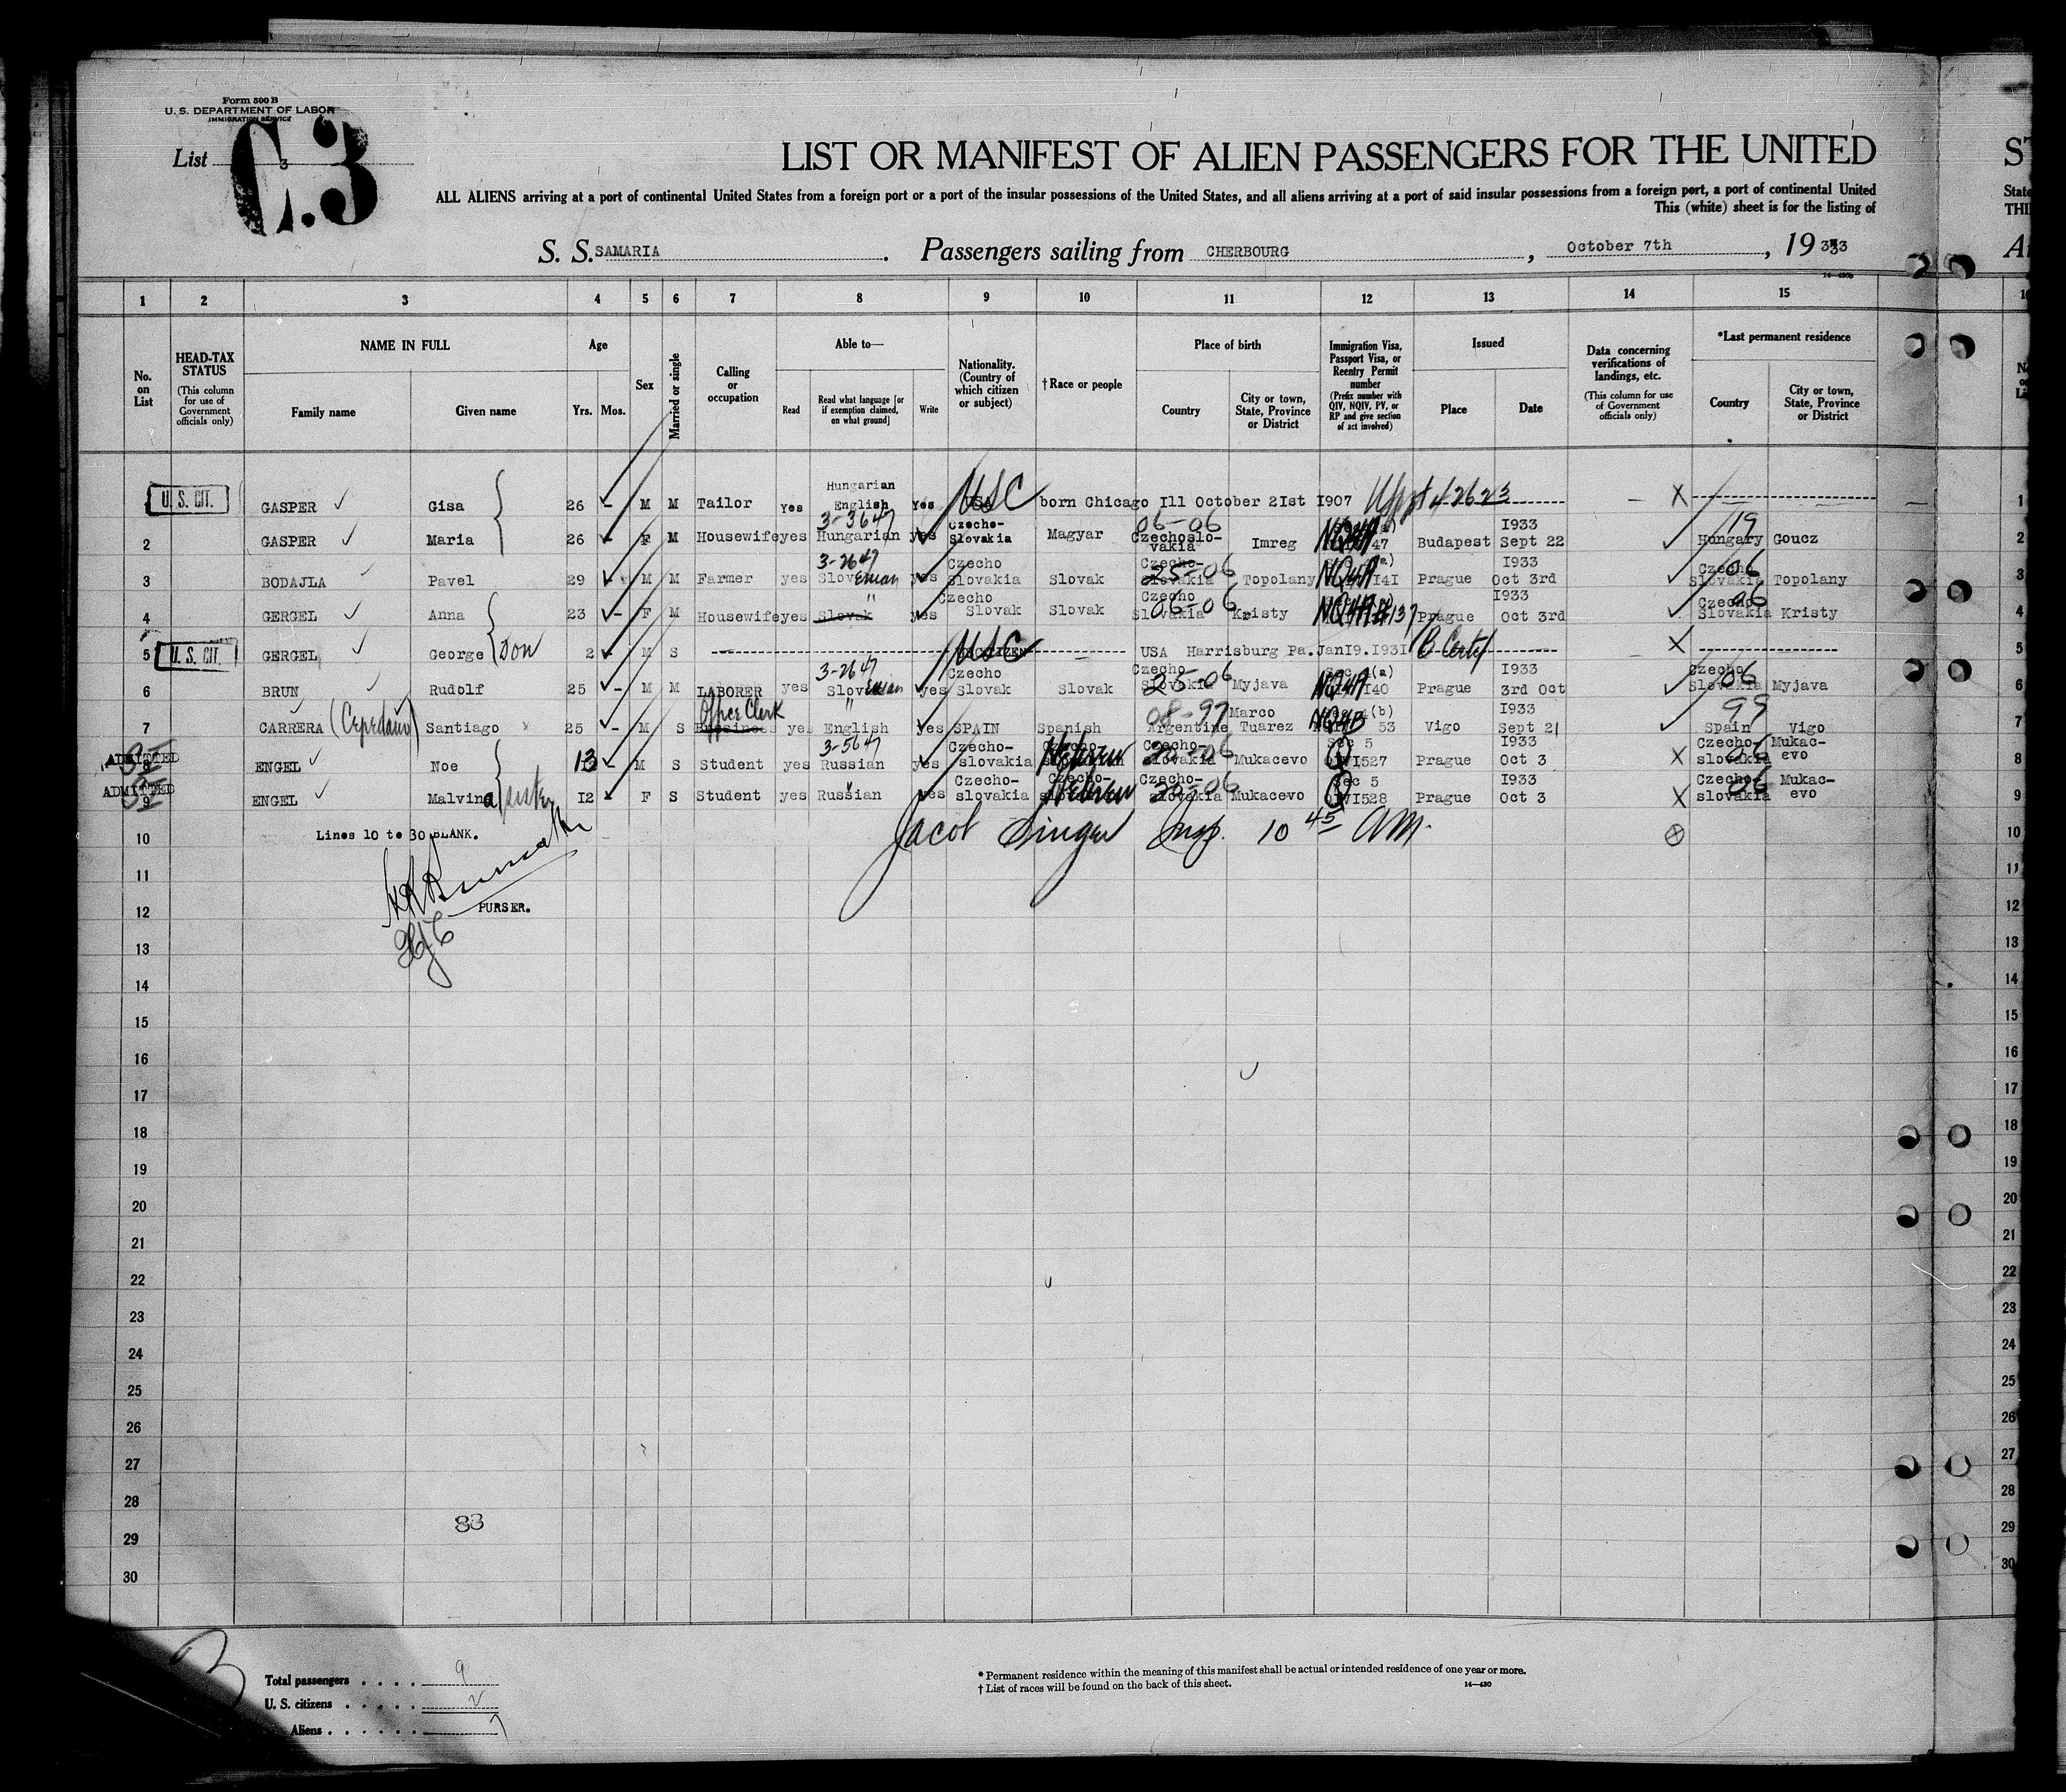 Form 500 B
U. S. DEPARTMENT OF LABOR
IMMIGRATION SERVICE
List 3
C.3
LIST OR MANIFEST OF ALIEN PASSENGERS FOR THE UNITED
ALL ALIENS arriving at a port of continental United States from a foreign port or a port of the insular possessions of the United States, and all aliens arriving at a port of said insular possessions from a foreign port, a port of continental United
This (white) sheet is for the listing of
S. S. SAMARIA. Passengers sailing from CHERBOURG, October 7th, 19 33
1 2 3 4 5 6 7 8 9 10 11 12 13 14 15
No. on List
HEAD-TAX STATUS (This column for use of Government officials only)
NAME IN FULL Family name Given name
Age Yrs. Mos.
Sex
Married or single
Calling or occupation
Able to— Read Read what language [or if exemption claimed, on what ground] Write
Nationality. (Country of which citizen or subject)
†Race or people
Place of birth Country City or town, State, Province or District
Immigration Visa, Passport Visa, or Reentry Permit number (Prefix number with QIV, NQIV, PV, or RP and give section of act involved)
Issued Place Date
Data concerning verifications of landings, etc. (This column for use of Government officials only)
*Last permanent residence Country City or town, State, Province or District
U. S. CIT. GASPER Gisa 26 - M M Tailor Yes Hungarian English Yes USA USC born Chicago Ill October 2Ist I907 X 1
2 GASPER Maria 26 - F M Housewife yes 3-3647 Hungarian yes Czecho-Slovakia Magyar 06-06 Czechoslo-vakia Imreg 47 Budapest I933 Sept 22 19 Hungary Goucz 2
3 BODAJLA Pavel 29 - M M Farmer yes 3-2647 Yes Czecho Slovakia Slovak Czecho-slovakia 25-06 Topolany NQ4A I4I Prague I933 Oct 3rd 06 Czecho Slovakia Topolany 3
4 GERGEL Anna 23 - F M Housewife yes " Slovak yes Czecho Slovak Slovak Czecho Slovakia 06-06 Kristy NQ4A 137 Prague I933 Oct 3rd 06 Czecho Slovakia Kristy 4
5 U. S. CIT. GERGEL George Son 2 M S USC USA Harrisburg Pa. Jan I9. I93I X 5
6 BRUN Rudolf 25 - M M LABORER yes 3-2647 yes Czecho Slovak Slovak Czecho Slovakia 25-06 Myjava NQ4A I40 Prague I933 3rd Oct 06 Czecho Slovakia Myjava 6
7 CARRERA Santiago 25 - M S Office Clerk yes " English Yes SPAIN Spanish 08-97 Argentine Marco Tuarez NQ4B (b) 53 Vigo I933 Sept 21 99 Spain Vigo 7
ADMITTED 8 ENGEL Noe 13 - M S Student yes 3-5647 Russian yes Czecho-slovakia Hebrew Czecho-slovakia 06 Mukacevo Sec 5 I527 Prague I933 Oct 3 X Czecho-slovakia 06 Mukac-evo 8
ADMITTED 9 ENGEL Malvina sister I2 F S Student yes " Russian yes Czecho-slovakia Hebrew Czecho-slovakia 06 Mukacevo Sec 5 I528 Prague I933 Oct 3 X Czecho-slovakia 06 Mukac-evo 9
10 Lines 10 to 30 BLANK. Jacob Singer Insp. 10 45 AM. 10
11 11
12 PURSER. 12
13 13
14 14
15 15
16 16
17 17
18 18
19 19
20 20
21 21
22 22
23 23
24 24
25 25
26 26
27 27
28 28
83
29 29
30 30
Total passengers . . . . 9
U. S. citizens . . . . . 2
Aliens . . . . . . 7
* Permanent residence within the meaning of this manifest shall be actual or intended residence of one year or more.
† List of races will be found on the back of this sheet. 14—430